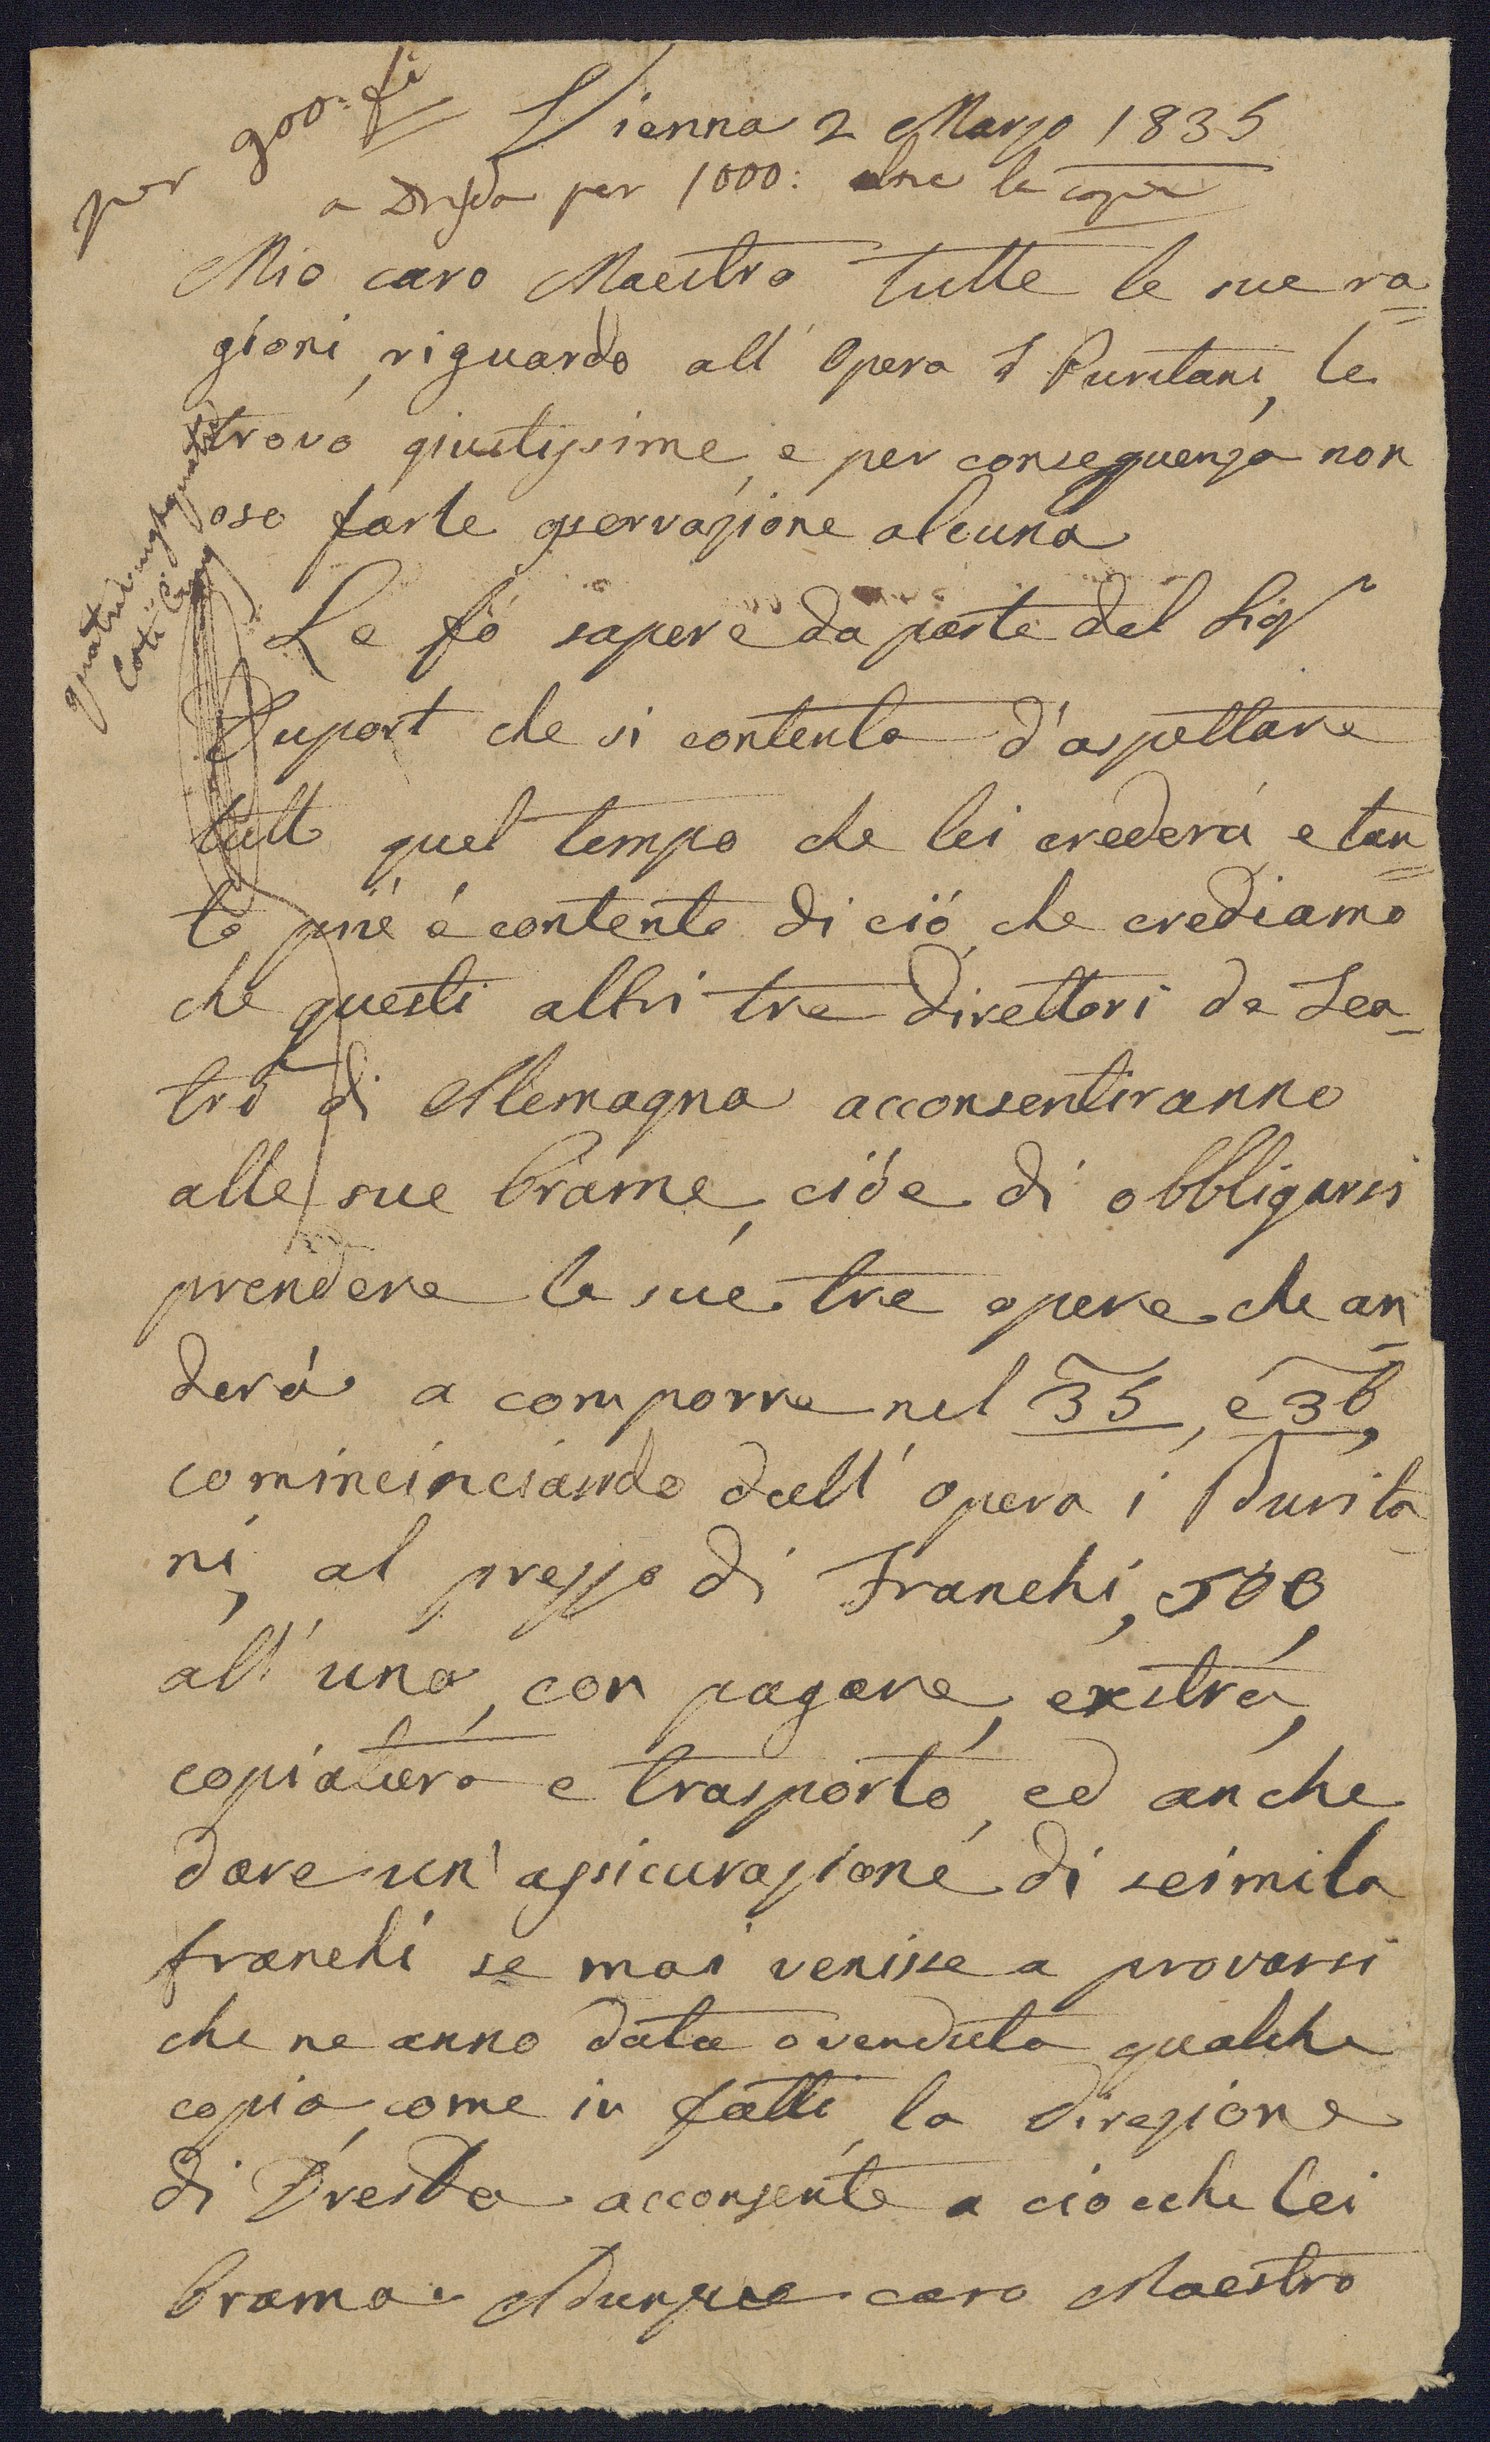 per 900: fi
Vienna 2 Marzo 1835
a Dresda per 1000: oltre la copia
Mio caro Maestro tutte le sue ra=
gioni, riguardo all' Opera I Puritani, le
trovo giustissime, e per conseguenza non
oso farle osservazione alcuna
Le fò sapere da parte del Sigr
Duport che si contenta d'aspettare
tutto quel tempo che lei crederà, e tan=
to piú é contento di ciò, che crediamo
che questi altri tre Direttori de Tea=
tro di Alemagna acconsentiranno
alle sue brame, cióe di obbligarsi
prendere le sue tre opere che an=
derá a comporre nel 35, é 36,
comincinciando dall' opera i Purita
ni, al prezzo di Franchi, 500,
all' una, con pagare, exstra,
copiatura e trasporto, ed anche
dare un' assicurazione di seimila
franchi se mai venisse a provarsi
che ne anno data o venduta qualche
copia, come in fatti, la Direzione
di Dresda acconsente a ciocche lei
brama. Adunque caro Maestro